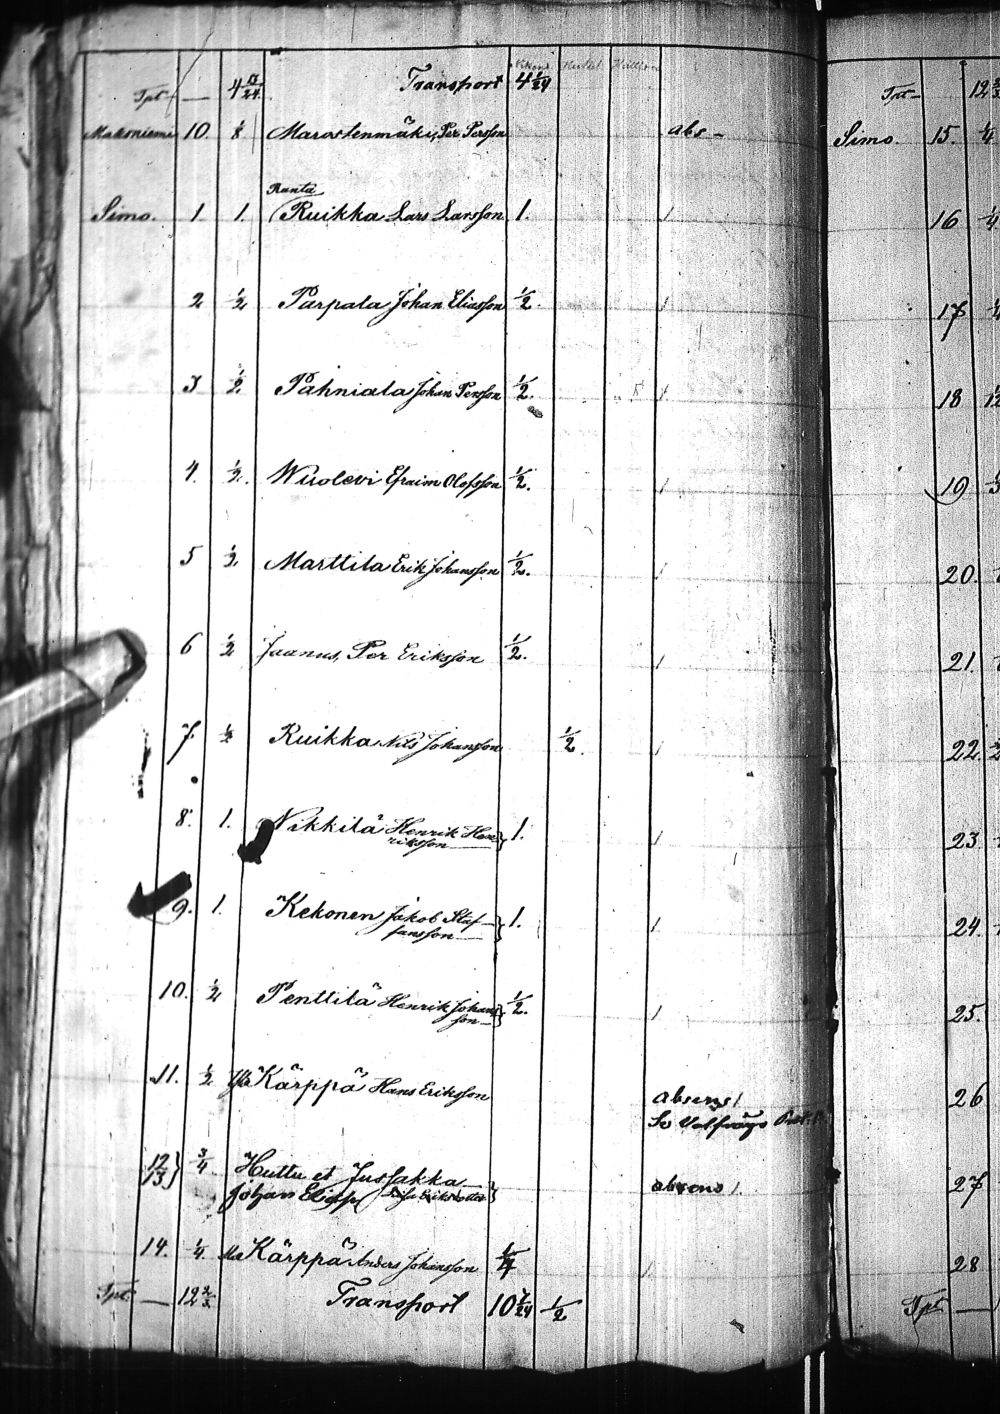 Tpt — 4 17/24 Transport 4 1/24
Maksniemi 10. 1/8 Marostenmäki, Per Persson abs —
Ranta
Simo. 1 1. Ruikka Lars Larsson 1. /
2 1/2 Parpala Johan Eliasson 1/2. /
3 1/2 Pahniala Johan Persson 1/2. /
4. 1/2. Wuolevi Efraim Olofsson 1/2. /
5 1/2 Marttila Erik Johansson 1/2. /
6 1/2 Jaanus, Per Eriksson 1/2. /
7. 1/2 Ruikka Nils Johansson 1/2. /
8. 1. Nikkilä Henrik Hen-
riksson } 1. /
9. 1. Kekonen Jakob Staf-
fansson } 1. /
10. 1/2 Penttilä Henrik Johans-
son } 1/2. /
11. 1/2 Kärppä Hans Eriksson
absens /
Se
12/13 } 3/4 Huttu et Jussakka
Johan Eliass } absens /.
14. 1/4. Kärppä Anders Johansson 1/4 /.
Tpt — 12 2/3 Transport 10 7/24 1/2
Tpt — 12
Simo. 15. 1/4
16 1/4
17
18 1/2
19 1/3
20.
21.
22. 1/2
23
24.
25.
26
27
28
Tpt —